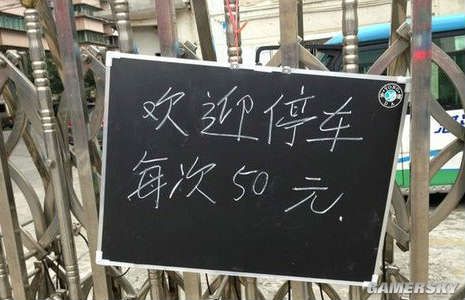 欢迎停车
每次50元.
GAMERSKY